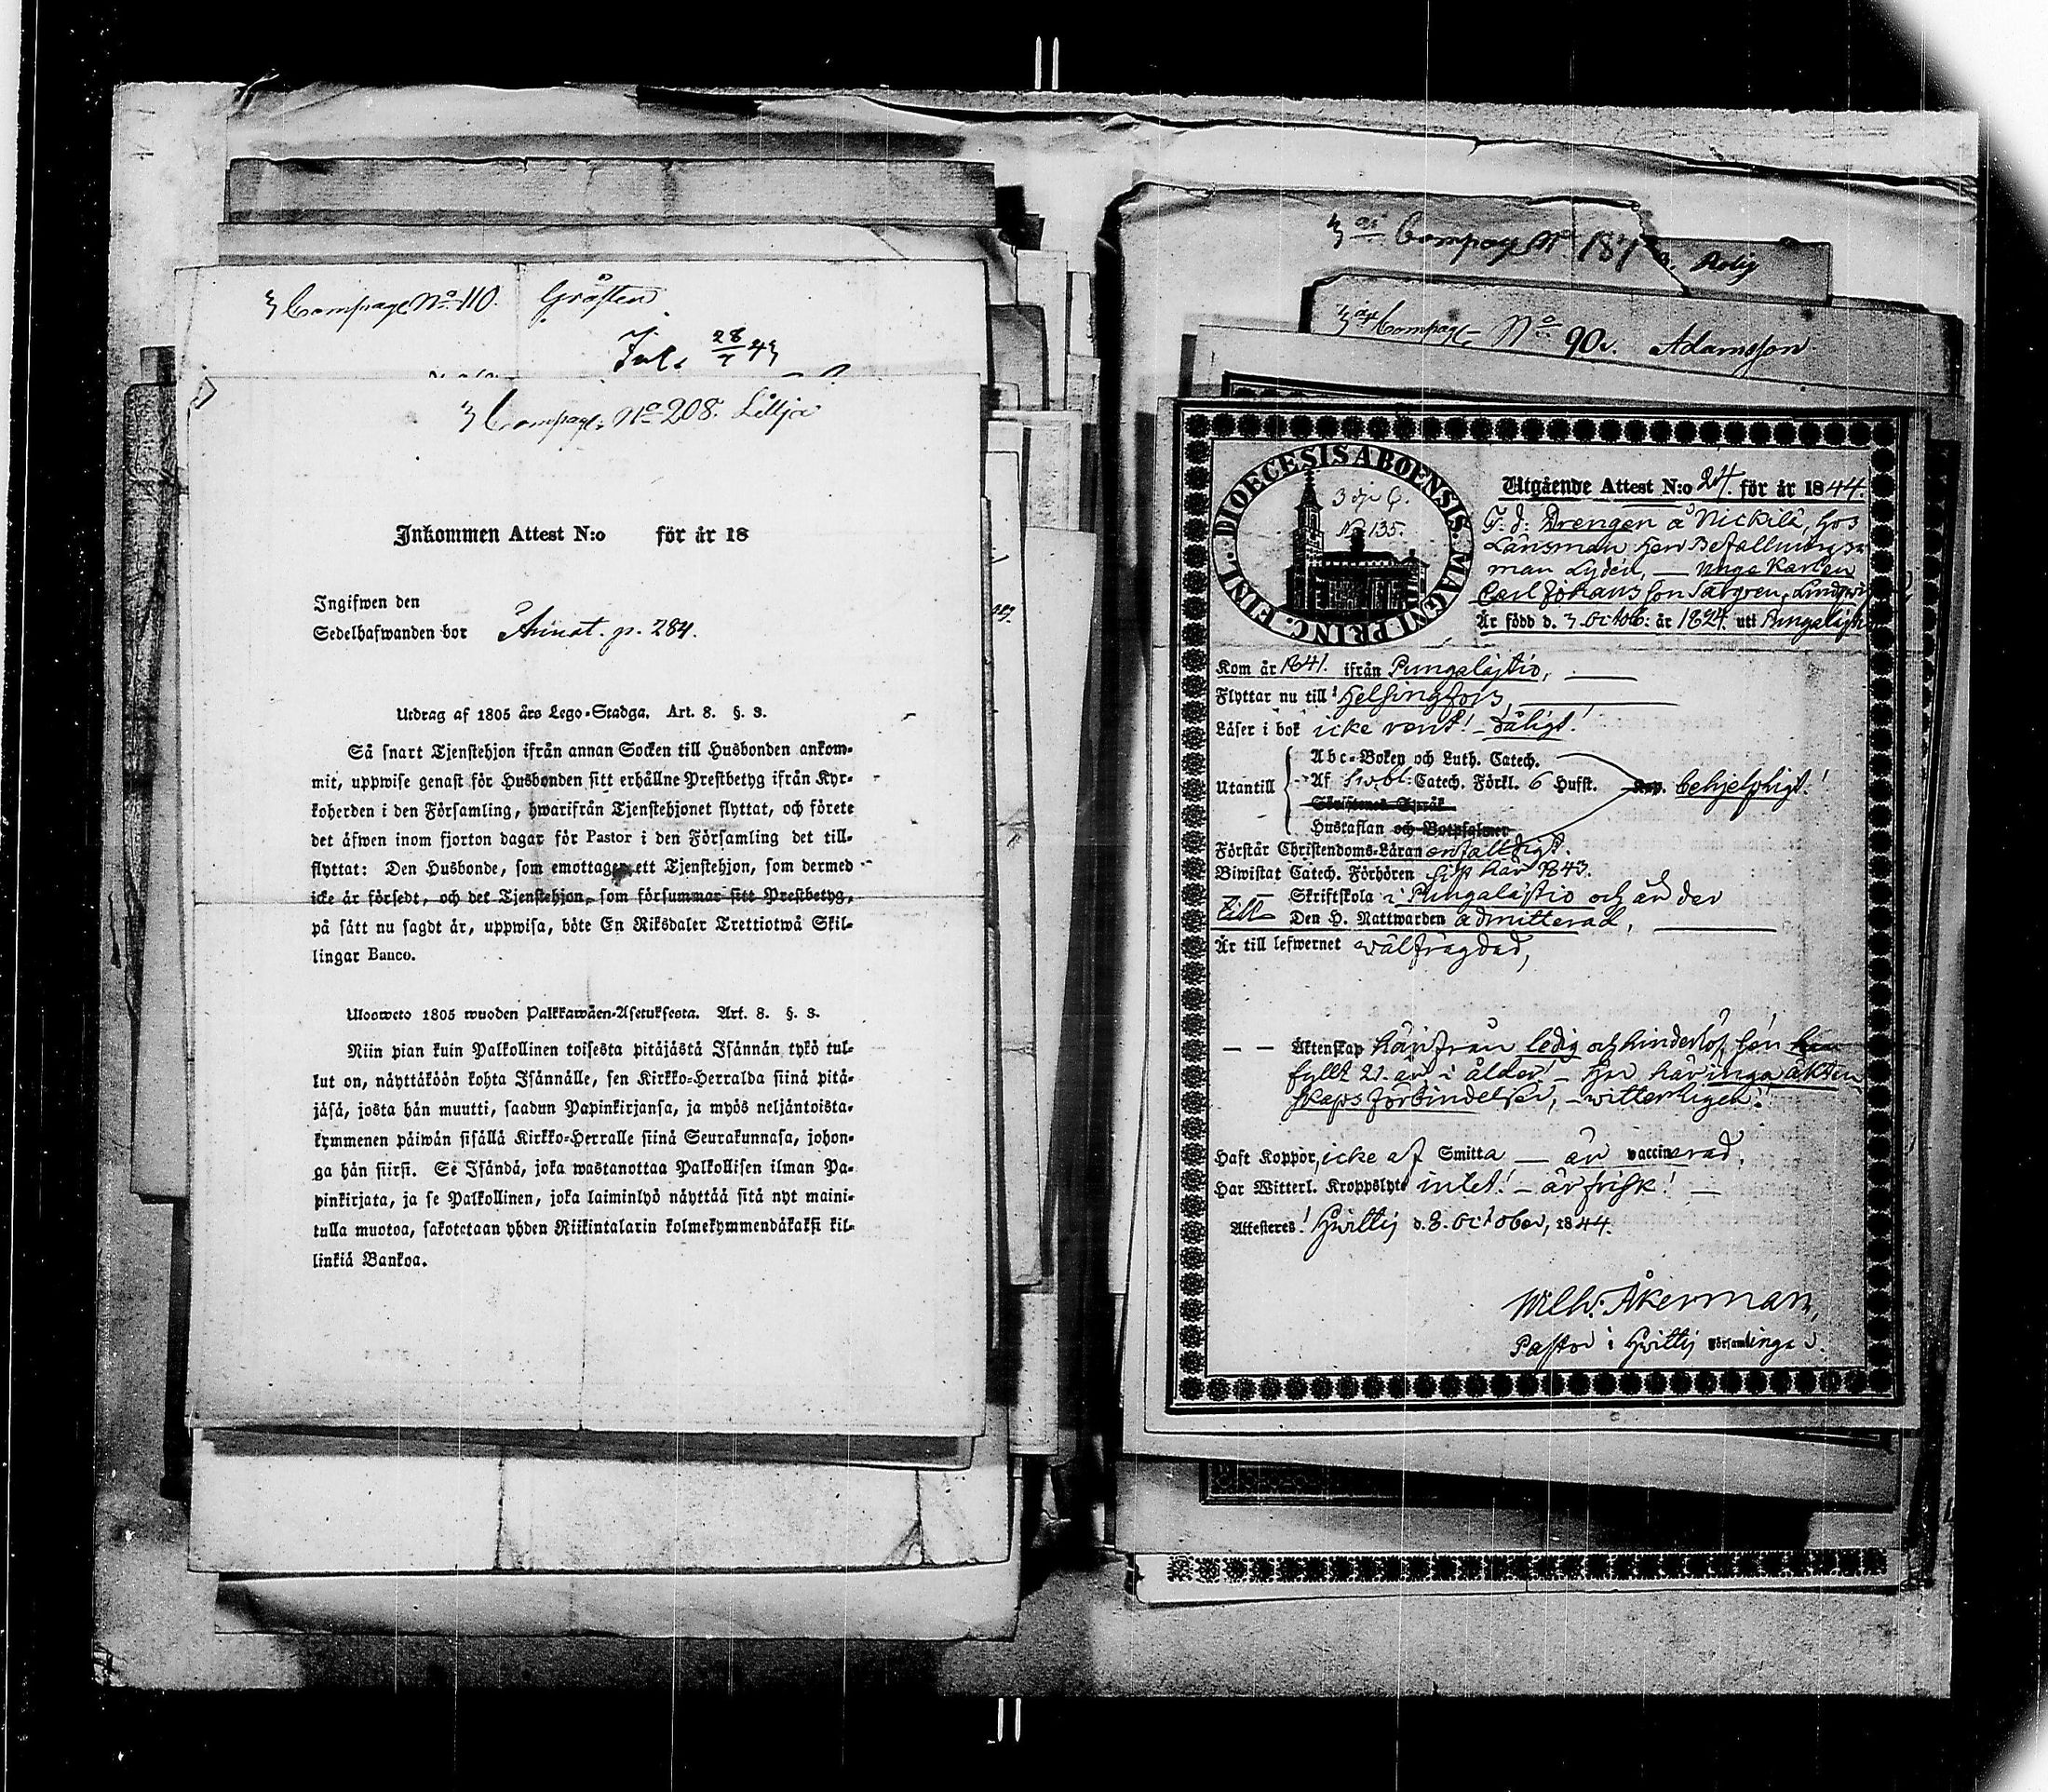 3 Compagn No 110. Gråsten
Ink. 28/7 43
3 Compagn. No 208. Lillja
Inkommen Attest N:o för år 18
Ingifwen den
Sedelhafwanden bor Annot. p. 284.
Utdrag af 1805 års Lego-Stadga. Art. 8. §. 3.
Så snart Tjenstehjon ifrån annan Socken till Husbonden ankom-
mit, uppwise genast för Husbonden sitt erhållne Prestbetyg ifrån Kyr-
koherden i den Församling, hwarifrån Tjenstehjonet flyttat, och förete
det äfwen inom fjorton dagar för Pastor i den Församling det till-
flyttat: Den Husbonde, som emottager ett Tjenstehjon, som dermed
icke är försedt, och det Tjenstehjon, som försummar sitt Prestbetyg,
på sätt nu sagdt är, uppwisa, böte En Riksdaler Trettiotwå Skil-
lingar Banco.
Ulosweto 1805 wuoden Palkkawäen-Asetuksesta. Art. 8. §. 3.
Niin pian kuin Palkollinen toisesta pitäjästä Isännän tykö tul-
lut on, näyttäköön kohta Isännälle, sen Kirkko-Herralda siinä pitä-
jäsä, josta hän muutti, saadun Papinkirjansa, ja myös neljäntoista-
kymmenen päiwän sisällä Kirkko-Herralle siinä Seurakunnasa, johon-
ga hän siirsi. Se Isändä, joka wastanottaa Palkollisen ilman Pa-
pinkirjata, ja se Palkollinen, joka laiminlyö näyttää sitä nyt maini-
tulla muotoa, sakotetaan yhden Riikintalarin kolmekymmendäkaksi kil-
linkiä Bankoa.
3 Compag No 187 Rolig
3 Compagn No 90. Adamsson
DIOECESIS ABOENSIS. MAGNI PRINC. FINL.
3 dje C.
No 135.
Utgående Attest N:o 24. för år 1844.
F. d. Drengen å Nickilä, hos
Länsman Herr Befallnings
man Lydén, — Unge Karlen
Carl Johansson
Är född d. 3 Octob: år 1824. uti
Kom år 1841. ifrån Pungalajtio,
Flyttar nu till Helsingfors
Läser i bok icke rent! – dåligt!
Utantill
Abc-Boken och Luth. Catech.
Af Catech. Förkl. 6 Hufst. behjelpligt!
Christenes Språk
Hustaflan och Botpsalmer
Förstår Christendoms-Läran enfalldigt.
Biwistat Catech. Förhören här 1843.
Skriftskola i Pungalajtio och är der
till Den H. Nattwarden admitterad,
Är till lefwernet wälfrägdad,
— — Äktenskap härifrån ledig och hinderlös,
fyllt 21. år i ålder! – Har här inga äkten
skaps förbindelser, – witterligen!
Haft Koppor, icke af Smitta — är vaccinerad.
Har Witterl. Kroppslyte intet! – är frisk! –
Attesteras! Hvittis d. 8. October, 1844.
Wilh: Åkerman,
Pastor i Hvittis Församling